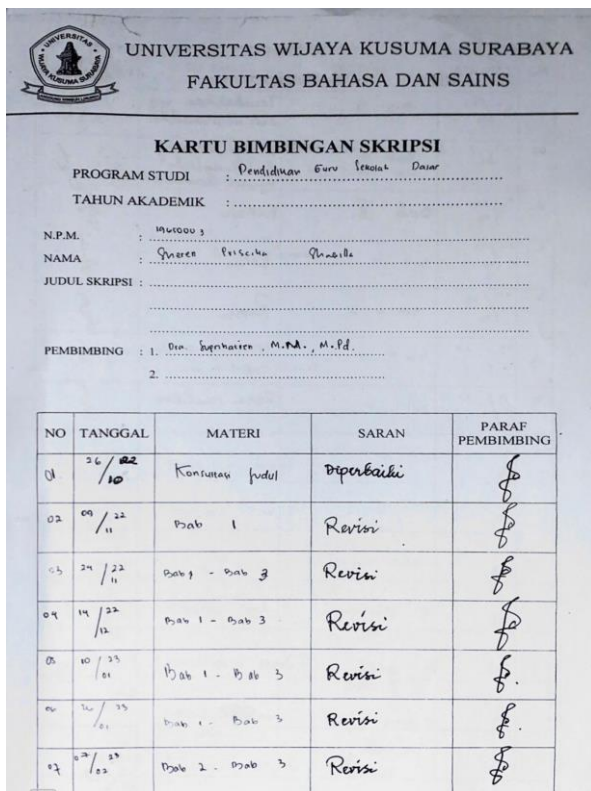 UNIVERSITAS WIJAYA KUSUMA SURABAYA
FAKULTAS BAHASA DAN SAINS
KARTU BIMBINGAN SKRIPSI
PROGRAM STUDI : Pendidikan Guru Sekolah Dasar
TAHUN AKADEMIK :
N.P.M. :
NAMA :
JUDUL SKRIPSI :
PEMBIMBING : 1. M.M., M.Pd.
2.
NO TANGGAL MATERI SARAN PARAF PEMBIMBING
01 26/10 22 Konsultasi Judul Diperbaiki
02 09/11 22 Bab 1 Revisi
03 24/11 22 Bab 1 - Bab 3 Revisi
04 14/12 22 Bab 1 - Bab 3 Revisi
05 10/01 23 Bab 1 - Bab 3 Revisi
06 Bab 1 - Bab 3 Revisi
07 07/02 23 Bab 2 - Bab 3 Revisi